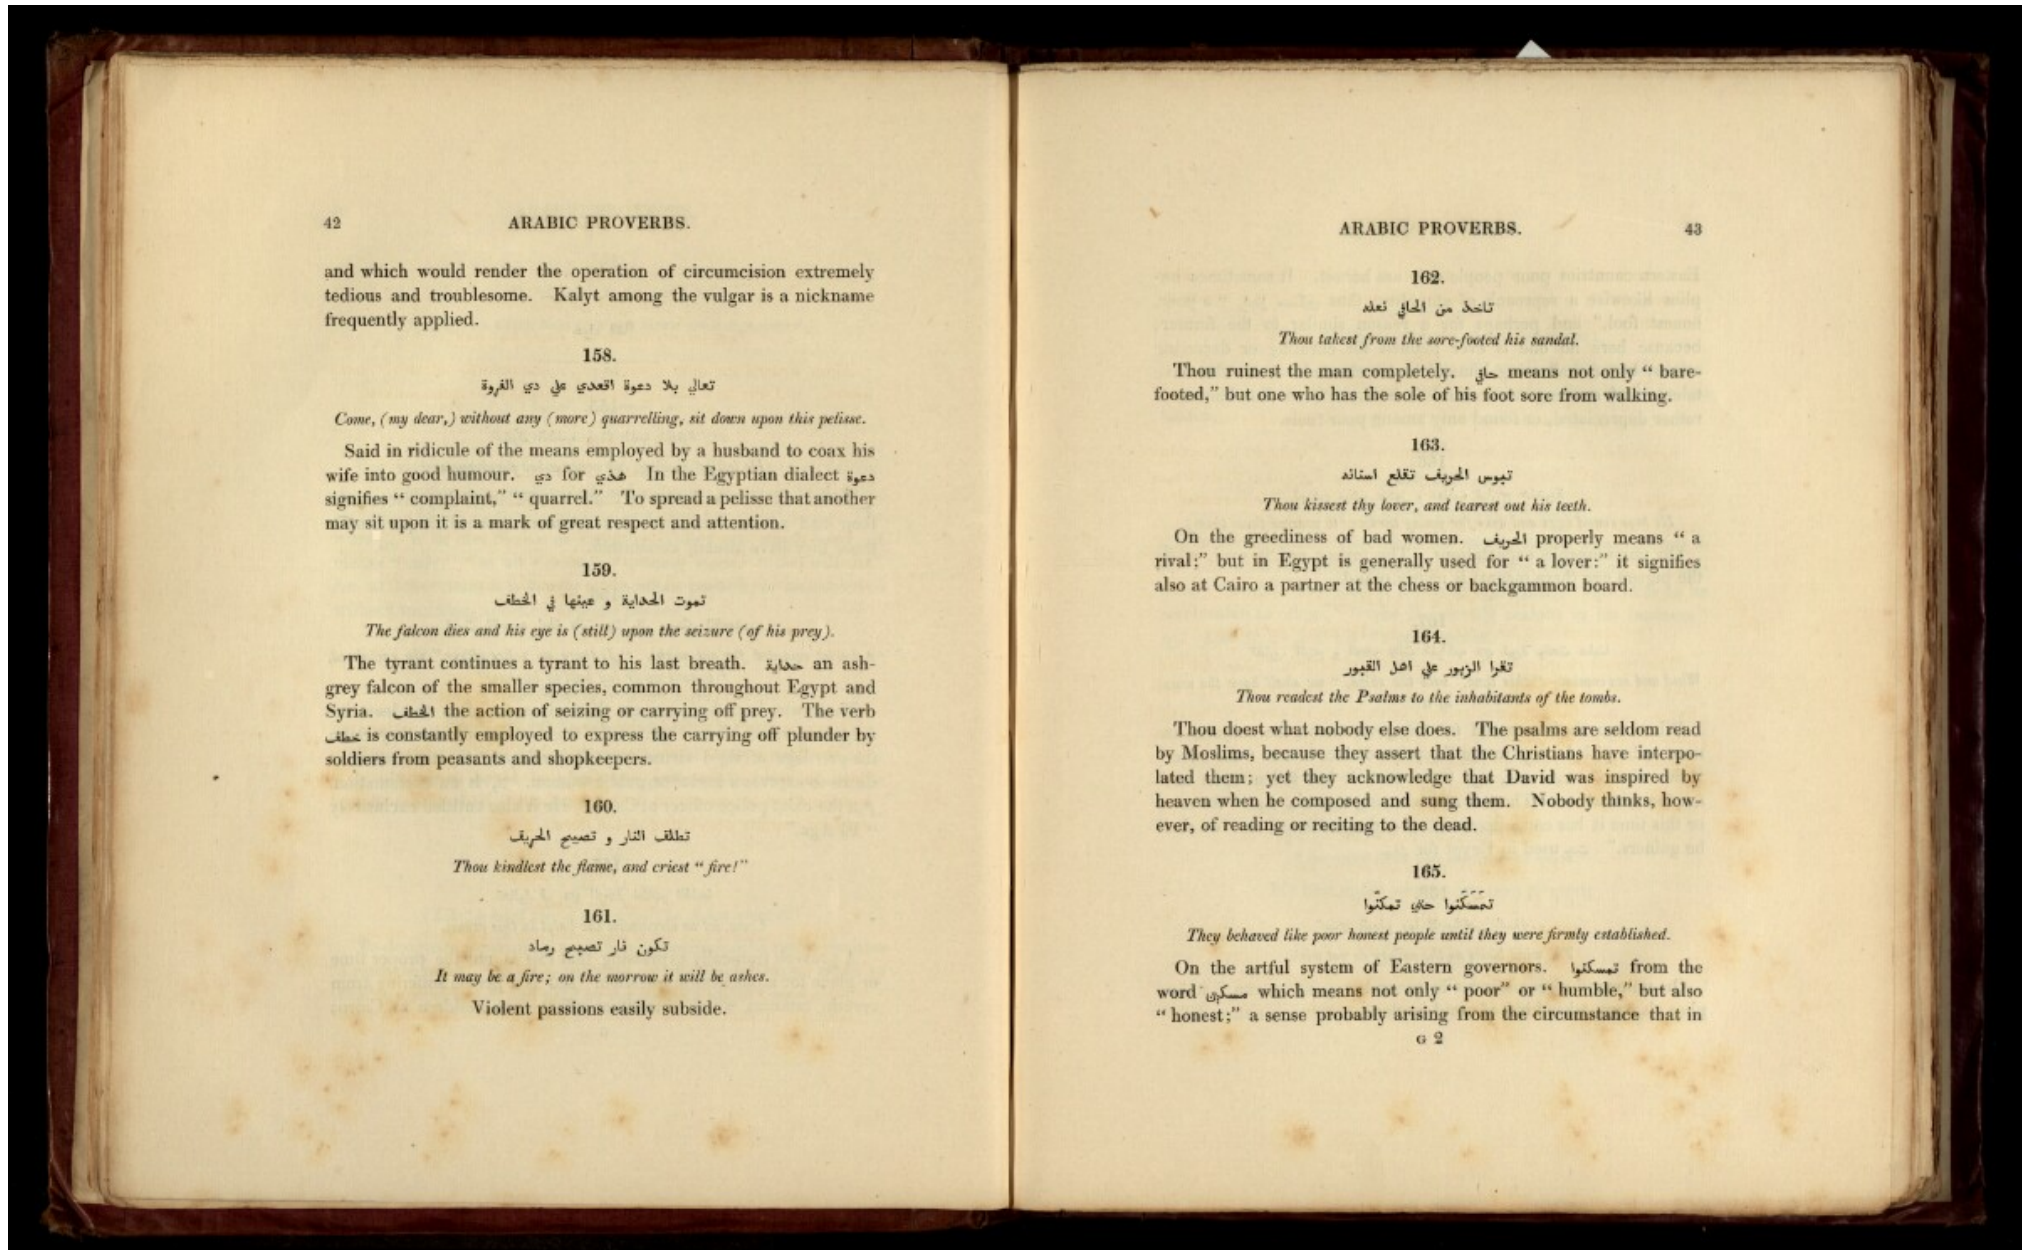 42 ARABIC PROVERBS.
and which would render the operation of circumcision extremely
tedious and troublesome. Kalyt among the vulgar is a nickname
frequently applied.
158.
تعالي بلا دعوة اقعدي علي دي الفروة
Come, (my dear,) without any (more) quarrelling, sit down upon this pelisse.
Said in ridicule of the means employed by a husband to coax his
wife into good humour. دي for هذي In the Egyptian dialect دعوة
signifies “ complaint,” “ quarrel.” To spread a pelisse that another
may sit upon it is a mark of great respect and attention.
159.
تموت الحداية و عينها في الخطف
The falcon dies and his eye is (still) upon the seizure (of his prey).
The tyrant continues a tyrant to his last breath. حداية an ash-
grey falcon of the smaller species, common throughout Egypt and
Syria. الخطف the action of seizing or carrying off prey. The verb
خطف is constantly employed to express the carrying off plunder by
soldiers from peasants and shopkeepers.
160.
تطلق النار و تصيح الحريف
Thou kindlest the flame, and criest “ fire!”
161.
تكون نار تصبح رماد
It may be a fire; on the morrow it will be ashes.
Violent passions easily subside.
ARABIC PROVERBS. 43
162.
تاخذ من الحافي نعله
Thou takest from the sore-footed his sandal.
Thou ruinest the man completely. حافي means not only “ bare-
footed,” but one who has the sole of his foot sore from walking.
163.
تبوس الحريف تقلع اسنانه
Thou kissest thy lover, and tearest out his teeth.
On the greediness of bad women. الحريف properly means “ a
rival;” but in Egypt is generally used for “ a lover:” it signifies
also at Cairo a partner at the chess or backgammon board.
164.
تقرا الزبور علي اهل القبور
Thou readest the Psalms to the inhabitants of the tombs.
Thou doest what nobody else does. The psalms are seldom read
by Moslims, because they assert that the Christians have interpo-
lated them; yet they acknowledge that David was inspired by
heaven when he composed and sung them. Nobody thinks, how-
ever, of reading or reciting to the dead.
165.
تَمَسْكَنوا حتي تمكّنوا
They behaved like poor honest people until they were firmly established.
On the artful system of Eastern governors. تمسكنوا from the
word مسكين which means not only “ poor” or “ humble,” but also
“ honest;” a sense probably arising from the circumstance that in
G 2